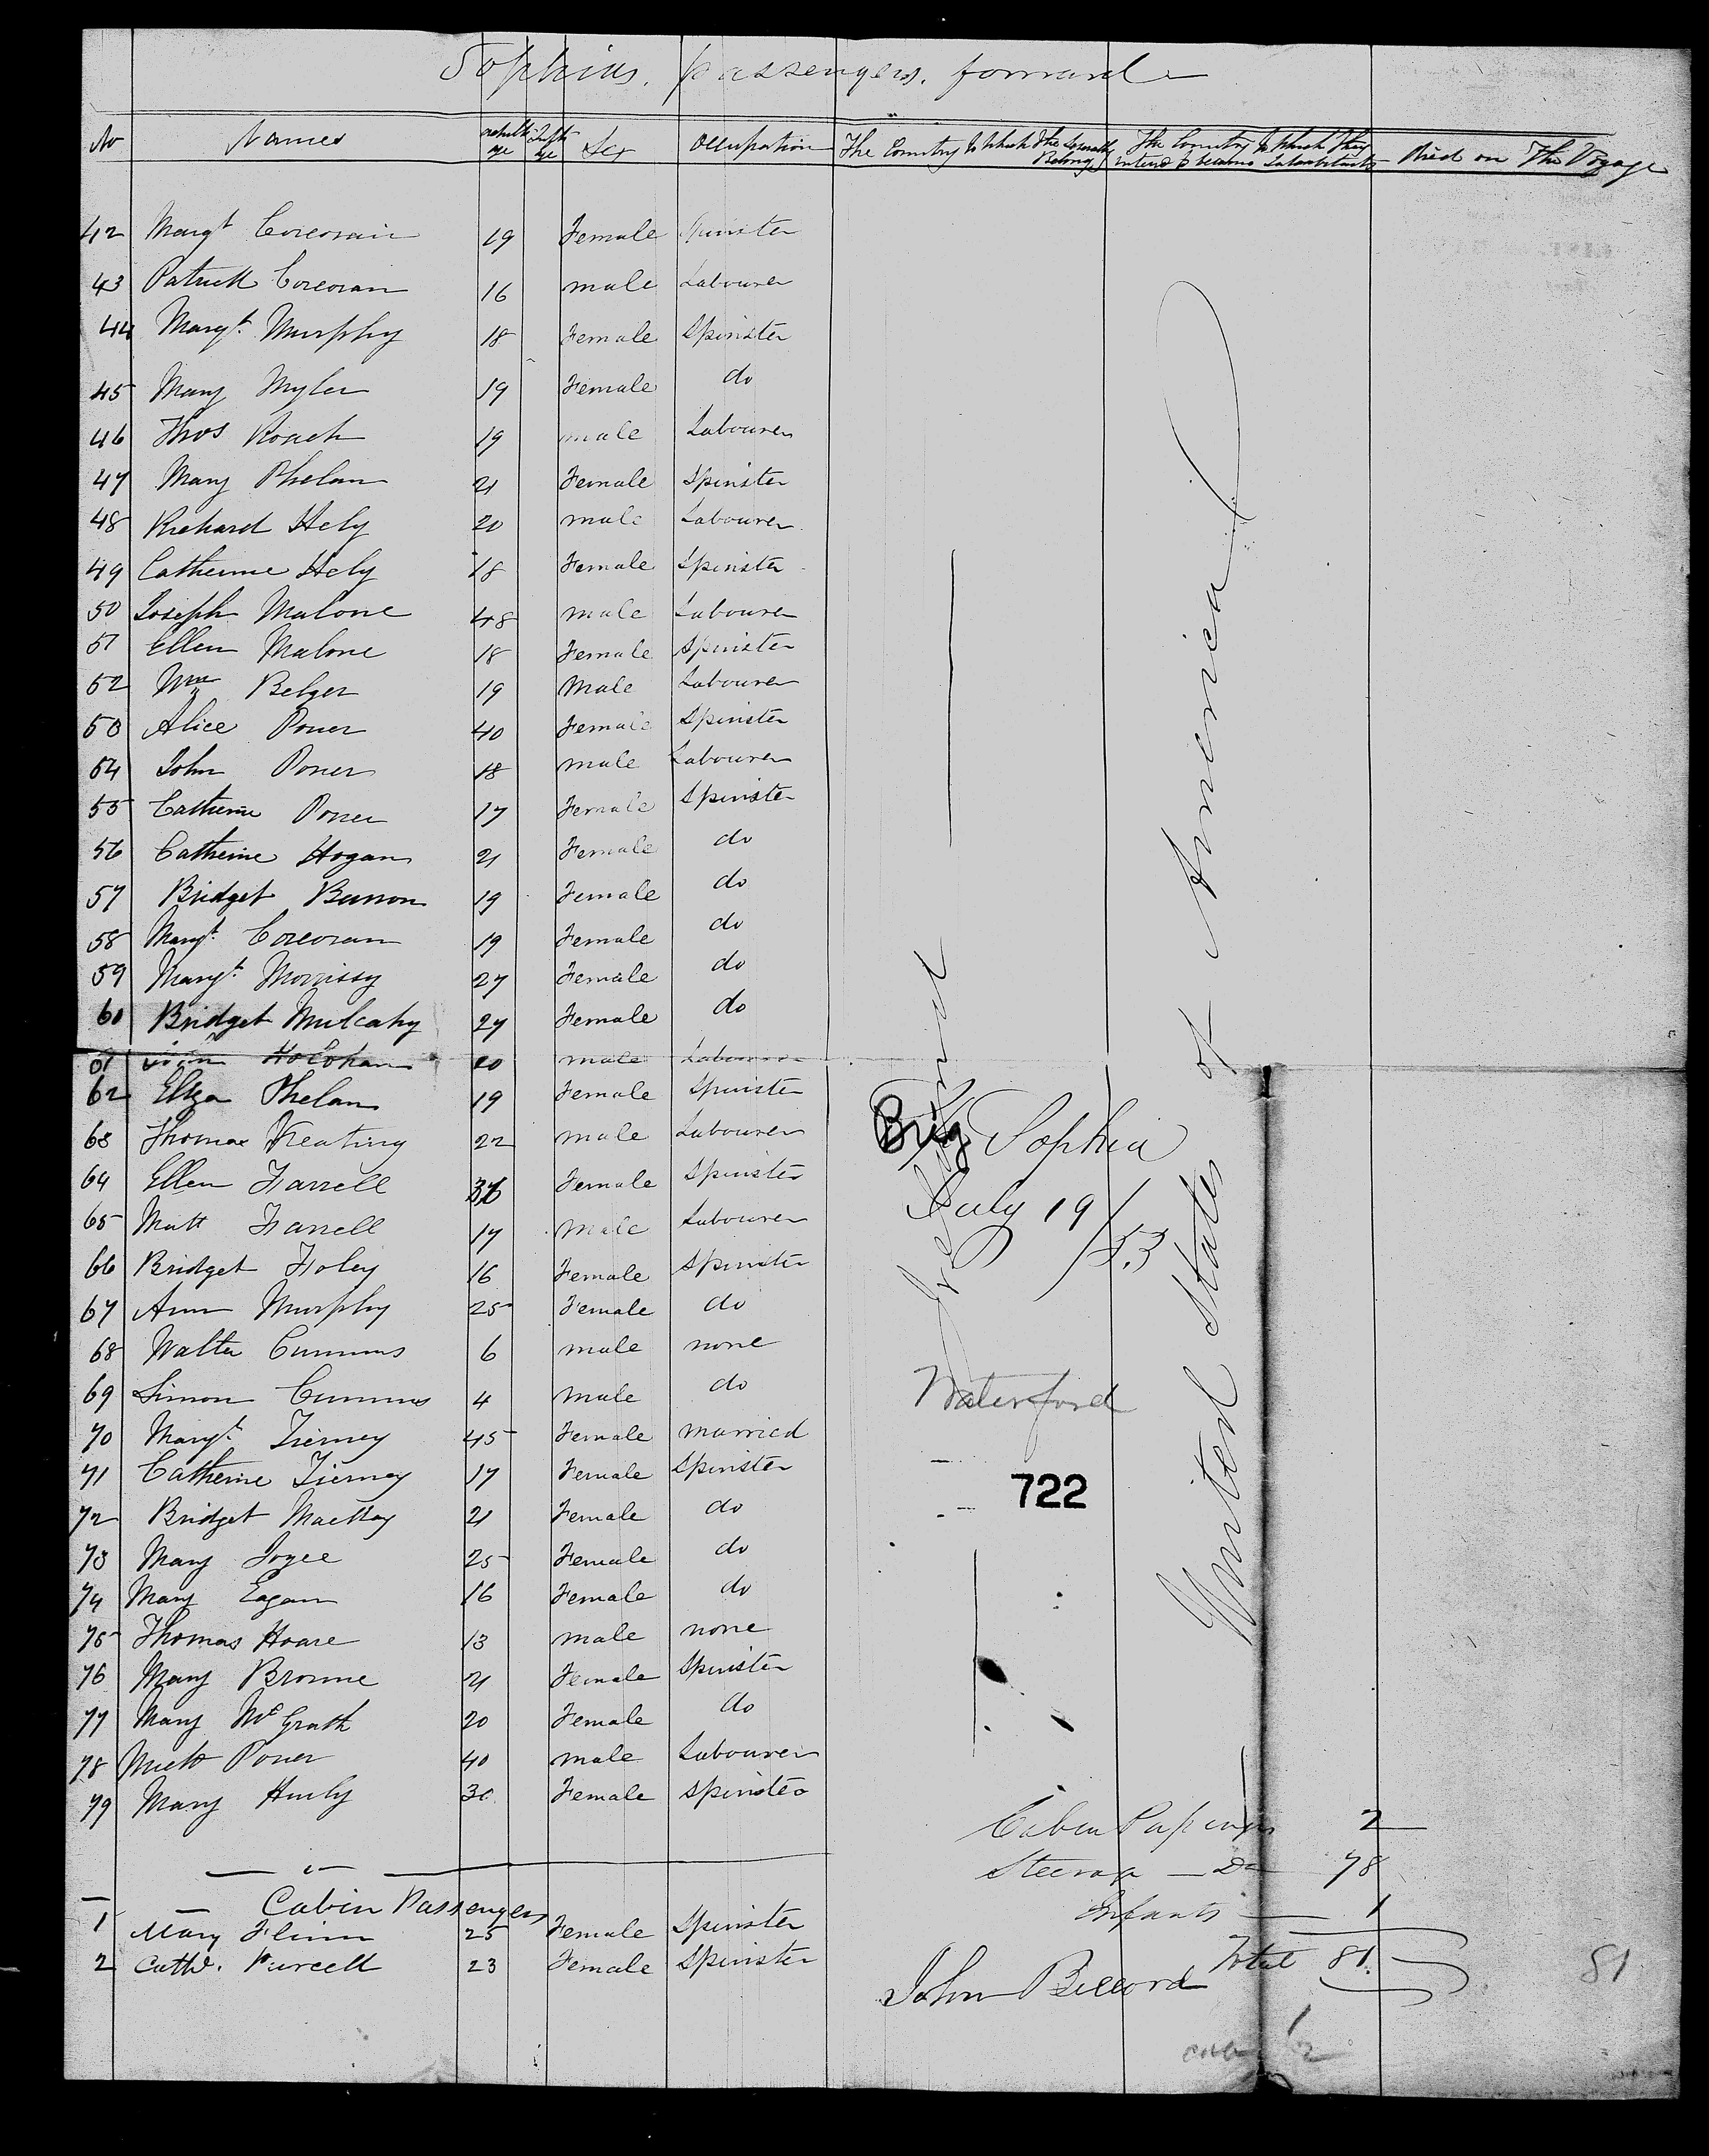 Sophias, passengers, forward
No Names adults age Infts age Sex Occupation The Country to Which They Severally Belong The Country to Which They intend to become Inhabitants Died on The Voyage
42 Margt Corcorain 19 Female Spinster
43 Patrick Corcoran 16 male Labourer
44 Margt Murphy 18 Female Spinster
45 Mary Myler 19 Female do
46 Thos Roach 19 male Labourer
47 Mary Phelan 21 Female Spinster
48 Richard Hely 20 male Labourer
49 Catherine Hely 18 Female Spinster
50 Joseph Malone 48 male Labourer
51 Ellen Malone 18 Female Spinster
52 Wm Belger 19 Male Labourer
53 Alice Power 40 Female Spinster
54 John Power 18 male Labourer
55 Catherine Power 17 Female Spinster
56 Catherine Hogan 21 Female do
57 Bridget Barron 19 Female do
58 Margt Corcoran 19 Female do
59 Margt Morrissy 27 Female do
60 Bridget Mulcahy 27 Female do
61 John Holohan 20 male Labourer
62 Eliza Phelan 19 Female Spinster
63 Thomas Keating 22 male Labourer
64 Ellen Farrell 36 Female Spinster
65 Matt Farrell 17 Male Labourer
66 Bridget Foley 16 Female Spinster
67 Ann Murphy 25 Female do
68 Walter Cummins 6 male none
69 Simon Cummins 4 male do
70 Margt Tierney 45 Female married
71 Catherine Tierney 17 Female Spinster
72 Bridget Mackey 21 Female do
73 Mary Joyce 25 Female do
74 Mary Eagan 16 Female do
75 Thomas Hoare 13 male none
76 Mary Browne 21 Female Spinster
77 Mary McGrath 20 Female do
78 Mick Power 40 male Labourer
79 Mary Hurly 30 Female Spinster
Ireland
United States of America
Brig Sophia
July 19/53
Waterford
722
Cabin Passengers
1 Mary Flinn 25 Female Spinster
2 Cathe. Purcell 23 Female Spinster
Cabin Passengers 2
Steerage Do 78
Infants 1
Total 81
81
John Bellord